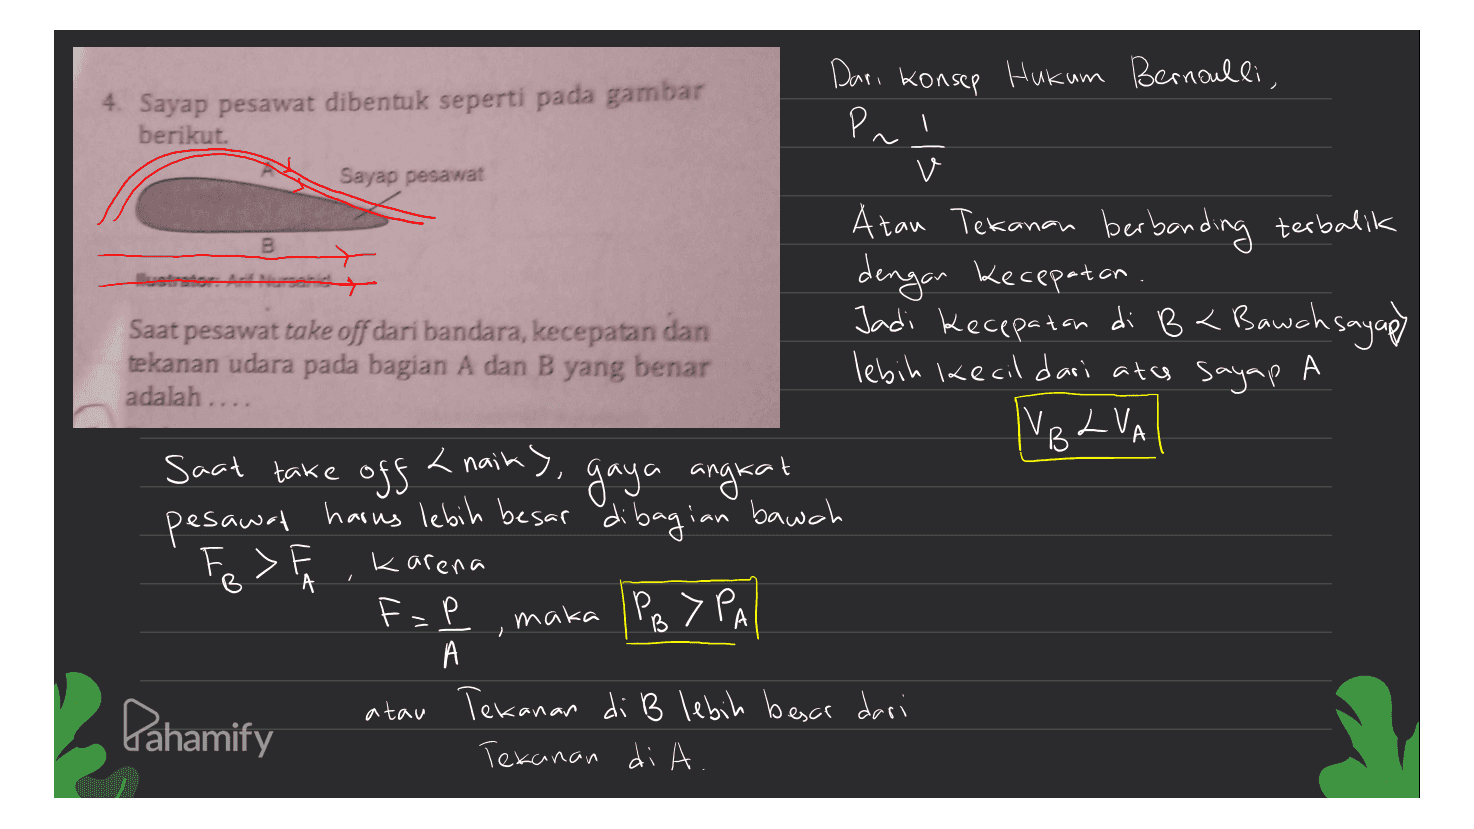 4. Sayap pesawat dibentuk seperti pada gambar
berikut.
A
Sayap pesawat
B
Ilustrator: Arif Nursahid
Saat pesawat take off dari bandara, kecepatan dan
tekanan udara pada bagian A dan B yang benar
adalah ....
Dari konsep Hukum Bernoulli,
P ~ 1/v
Atau Tekanan berbanding terbalik
dengan kecepatan.
Jadi kecepatan di B < Bawah sayap>
lebih kecil dari atas sayap A
V_B < V_A
Saat take off < naik >, gaya angkat
pesawat harus lebih besar dibagian bawah
F_B > F_A, karena
F = P/A, maka P_B > P_A
atau Tekanan di B lebih besar dari
Tekanan di A.
Pahamify